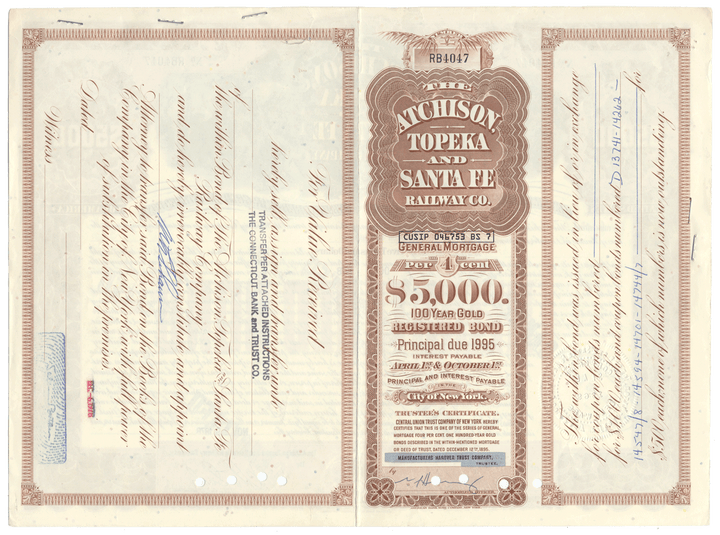 For Value Received
hereby sell assign and transfer unto
TRANSFER PER ATTACHED INSTRUCTIONS
THE CONNECTICUT BANK and TRUST CO.
of
the within Bond of The Atchison Topeka and Santa Fe
Railway Company
and do hereby irrevocably constitute and appoint
Attorney to transfer said Bond on the Books of the
Company in the City of New York with full power
of substitution in the premises.
Dated
Witness
RB4047
THE
ATCHISON,
TOPEKA
AND
SANTA FE
RAILWAY CO.
CUSIP 046753 BS 7
GENERAL MORTGAGE
PER 4 CENT
$5,000.
100 YEAR GOLD
REGISTERED BOND
Principal due 1995
INTEREST PAYABLE
APRIL 1ST & OCTOBER 1ST
PRINCIPAL AND INTEREST PAYABLE
IN THE
City of New York.
TRUSTEE'S CERTIFICATE.
CENTRAL UNION TRUST COMPANY OF NEW YORK HEREBY
CERTIFIES THAT THIS IS ONE OF THE SERIES OF GENERAL
MORTGAGE FOUR PER CENT. ONE HUNDRED YEAR GOLD
BONDS DESCRIBED IN THE WITHIN MENTIONED MORTGAGE
OR DEED OF TRUST, DATED DECEMBER 12TH, 1895.
MANUFACTURERS HANOVER TRUST COMPANY,
TRUSTEE,
by
AUTHORIZED OFFICER.
This bond was issued in lieu of or in exchange
for coupon bonds numbered
for $ and registered bonds numbered D 13741-14262-
14547/8-14594-14701-14744/7 for
$ each none of which numbers is now outstanding.